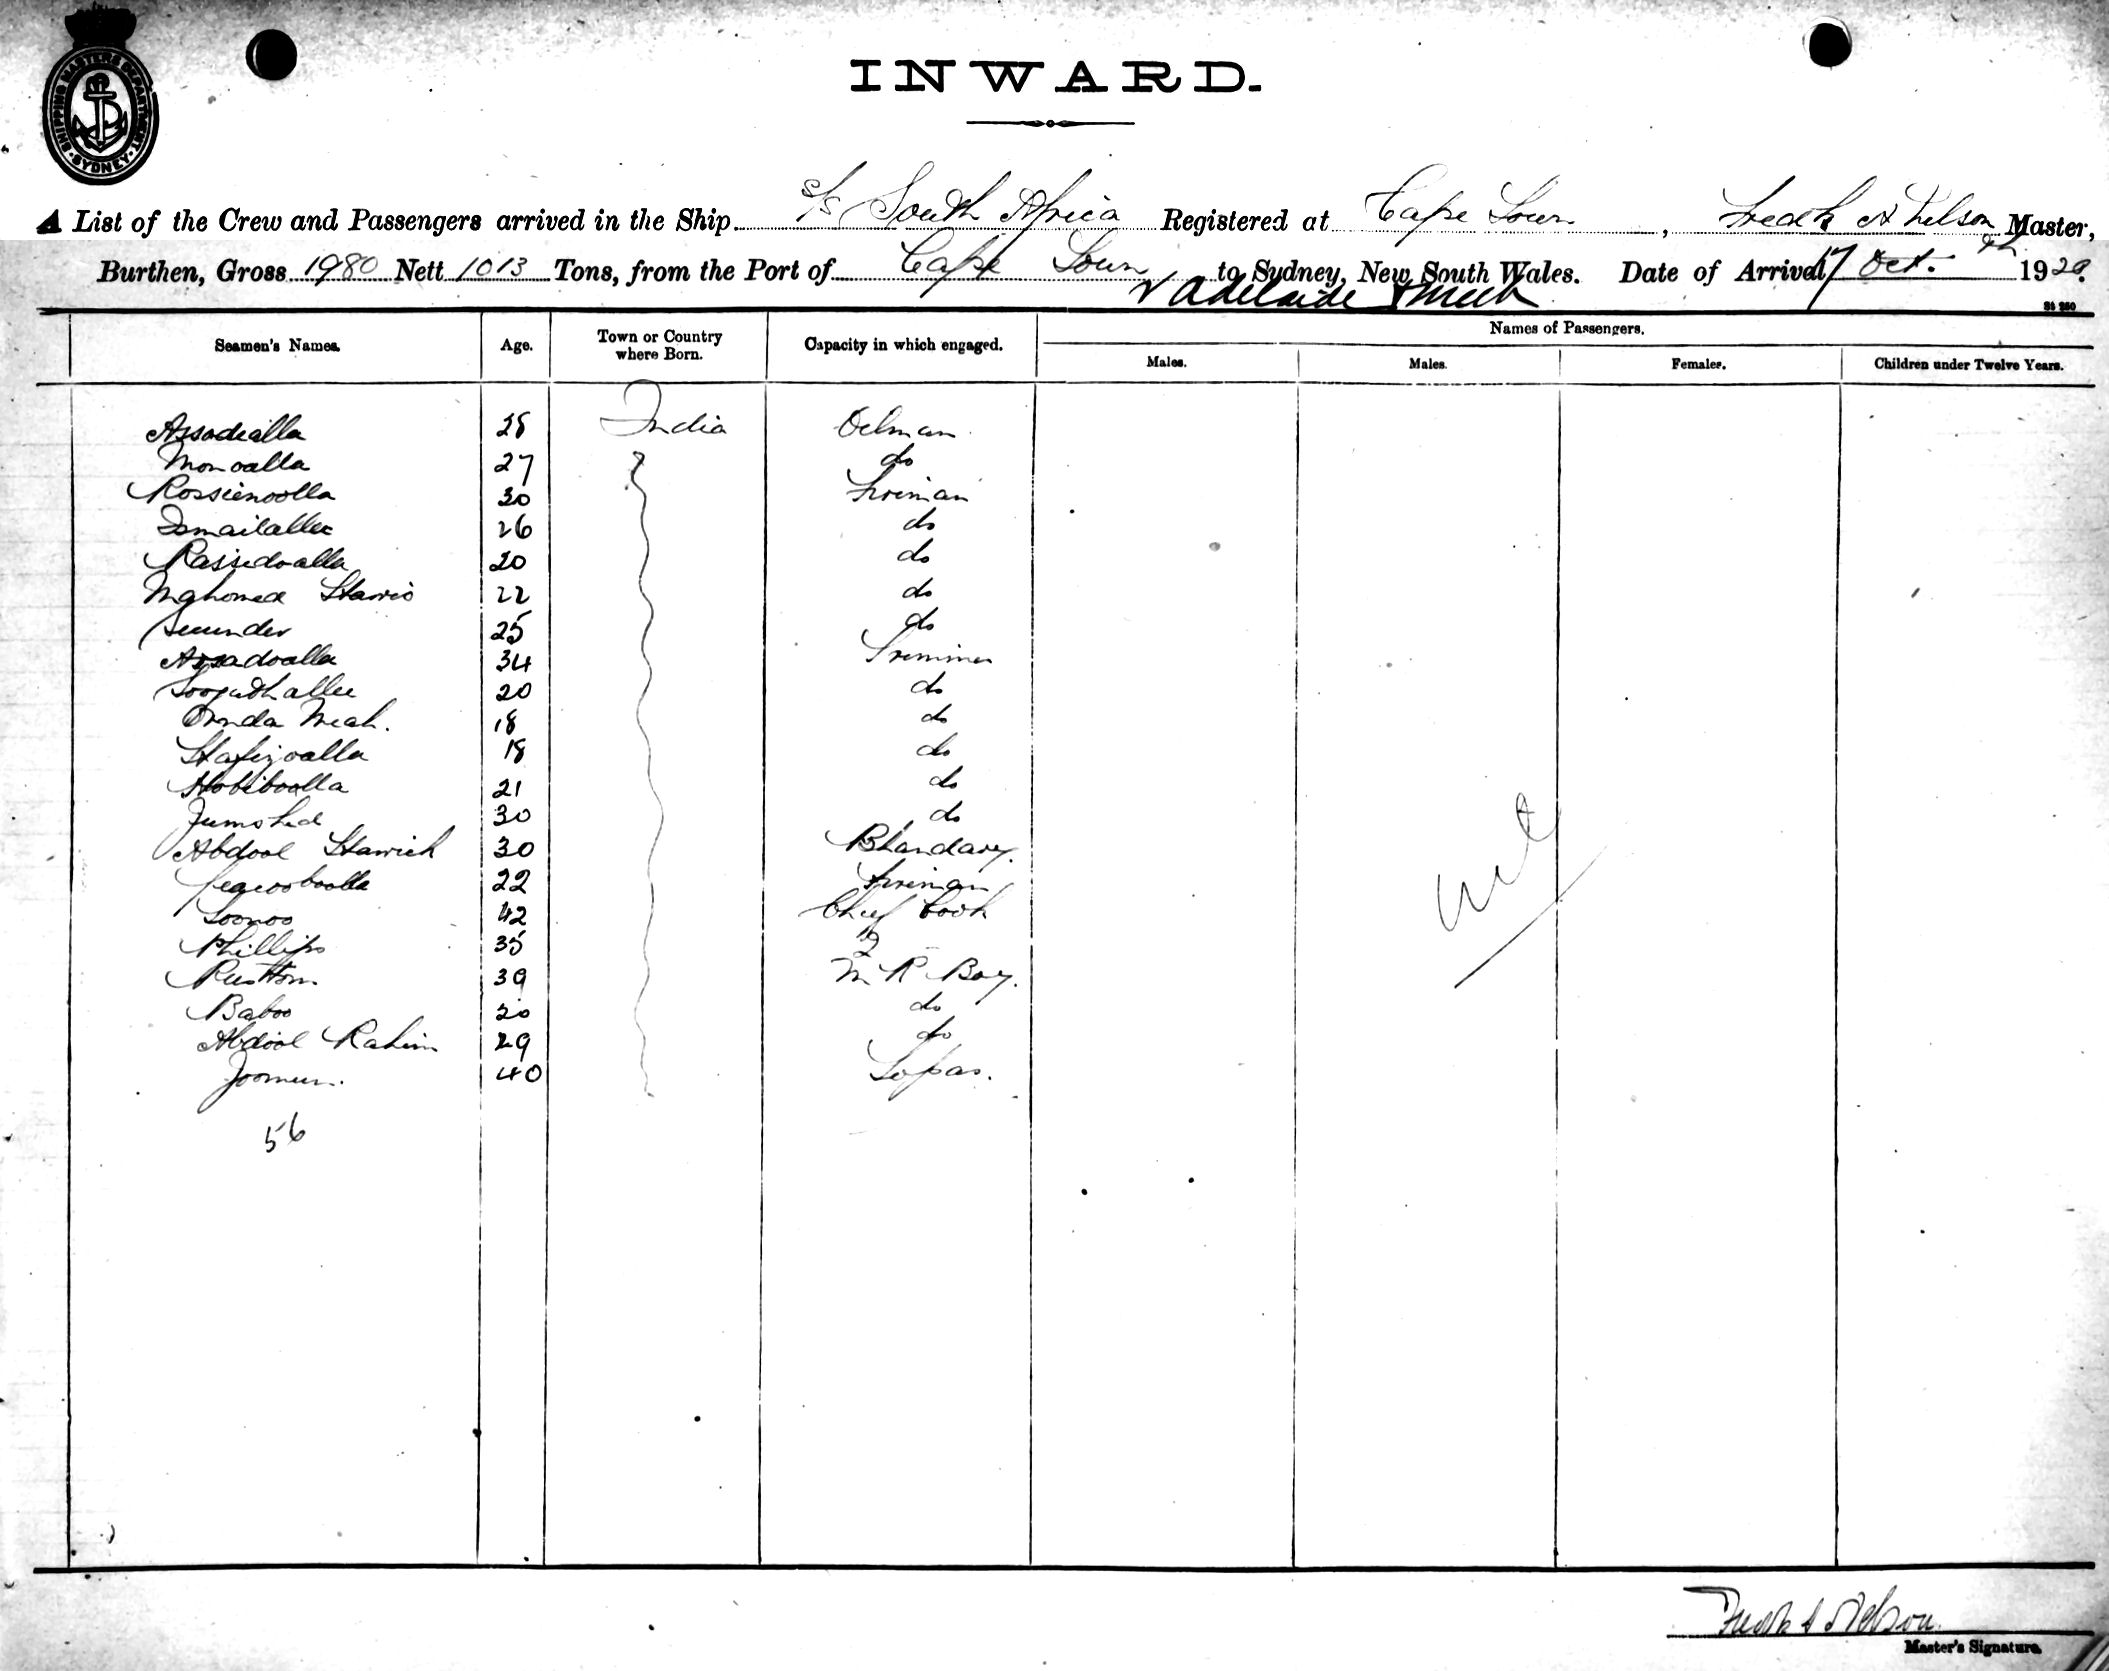 SHIPPING MASTERS DEPARTMENT SYDNEY
INWARD.
A List of the Crew and Passengers arrived in the Ship S/S South Africa Registered at Cape Town, Fredk A Nelson Master,
Burthen, Gross 1980 Nett 1013 Tons, from the Port of Cape Town to Sydney, New South Wales. Date of Arrival 17 Oct. 1920.
& Adelaide
St 250
Seamen's Names. Age. Town or Country where Born. Capacity in which engaged. Names of Passengers.
Males. Males. Females. Children under Twelve Years.
Assadialla 28 India Oilman
Monoalla 27 do
Rossienoolla 30 Fireman
Ismailallee 26 do
Rassidoalla 20 do
Mahomed 22 do
25 do
Assadoalla 34 Trimmer
20 do
Meah. 18 do
Hafizoalla 18 do
Hobiboolla 21 do
Jumshed 30 do
Abdool 30 Bhandary.
22 Fireman
42 Chief Cook
Phillips 35 2
Rusttom 39 M R Boy.
Baboo 20 do
Abdool Rahim 29 do
Joomun. 40 Topas.
56
nil
Fredk A Nelson
Master's Signature.